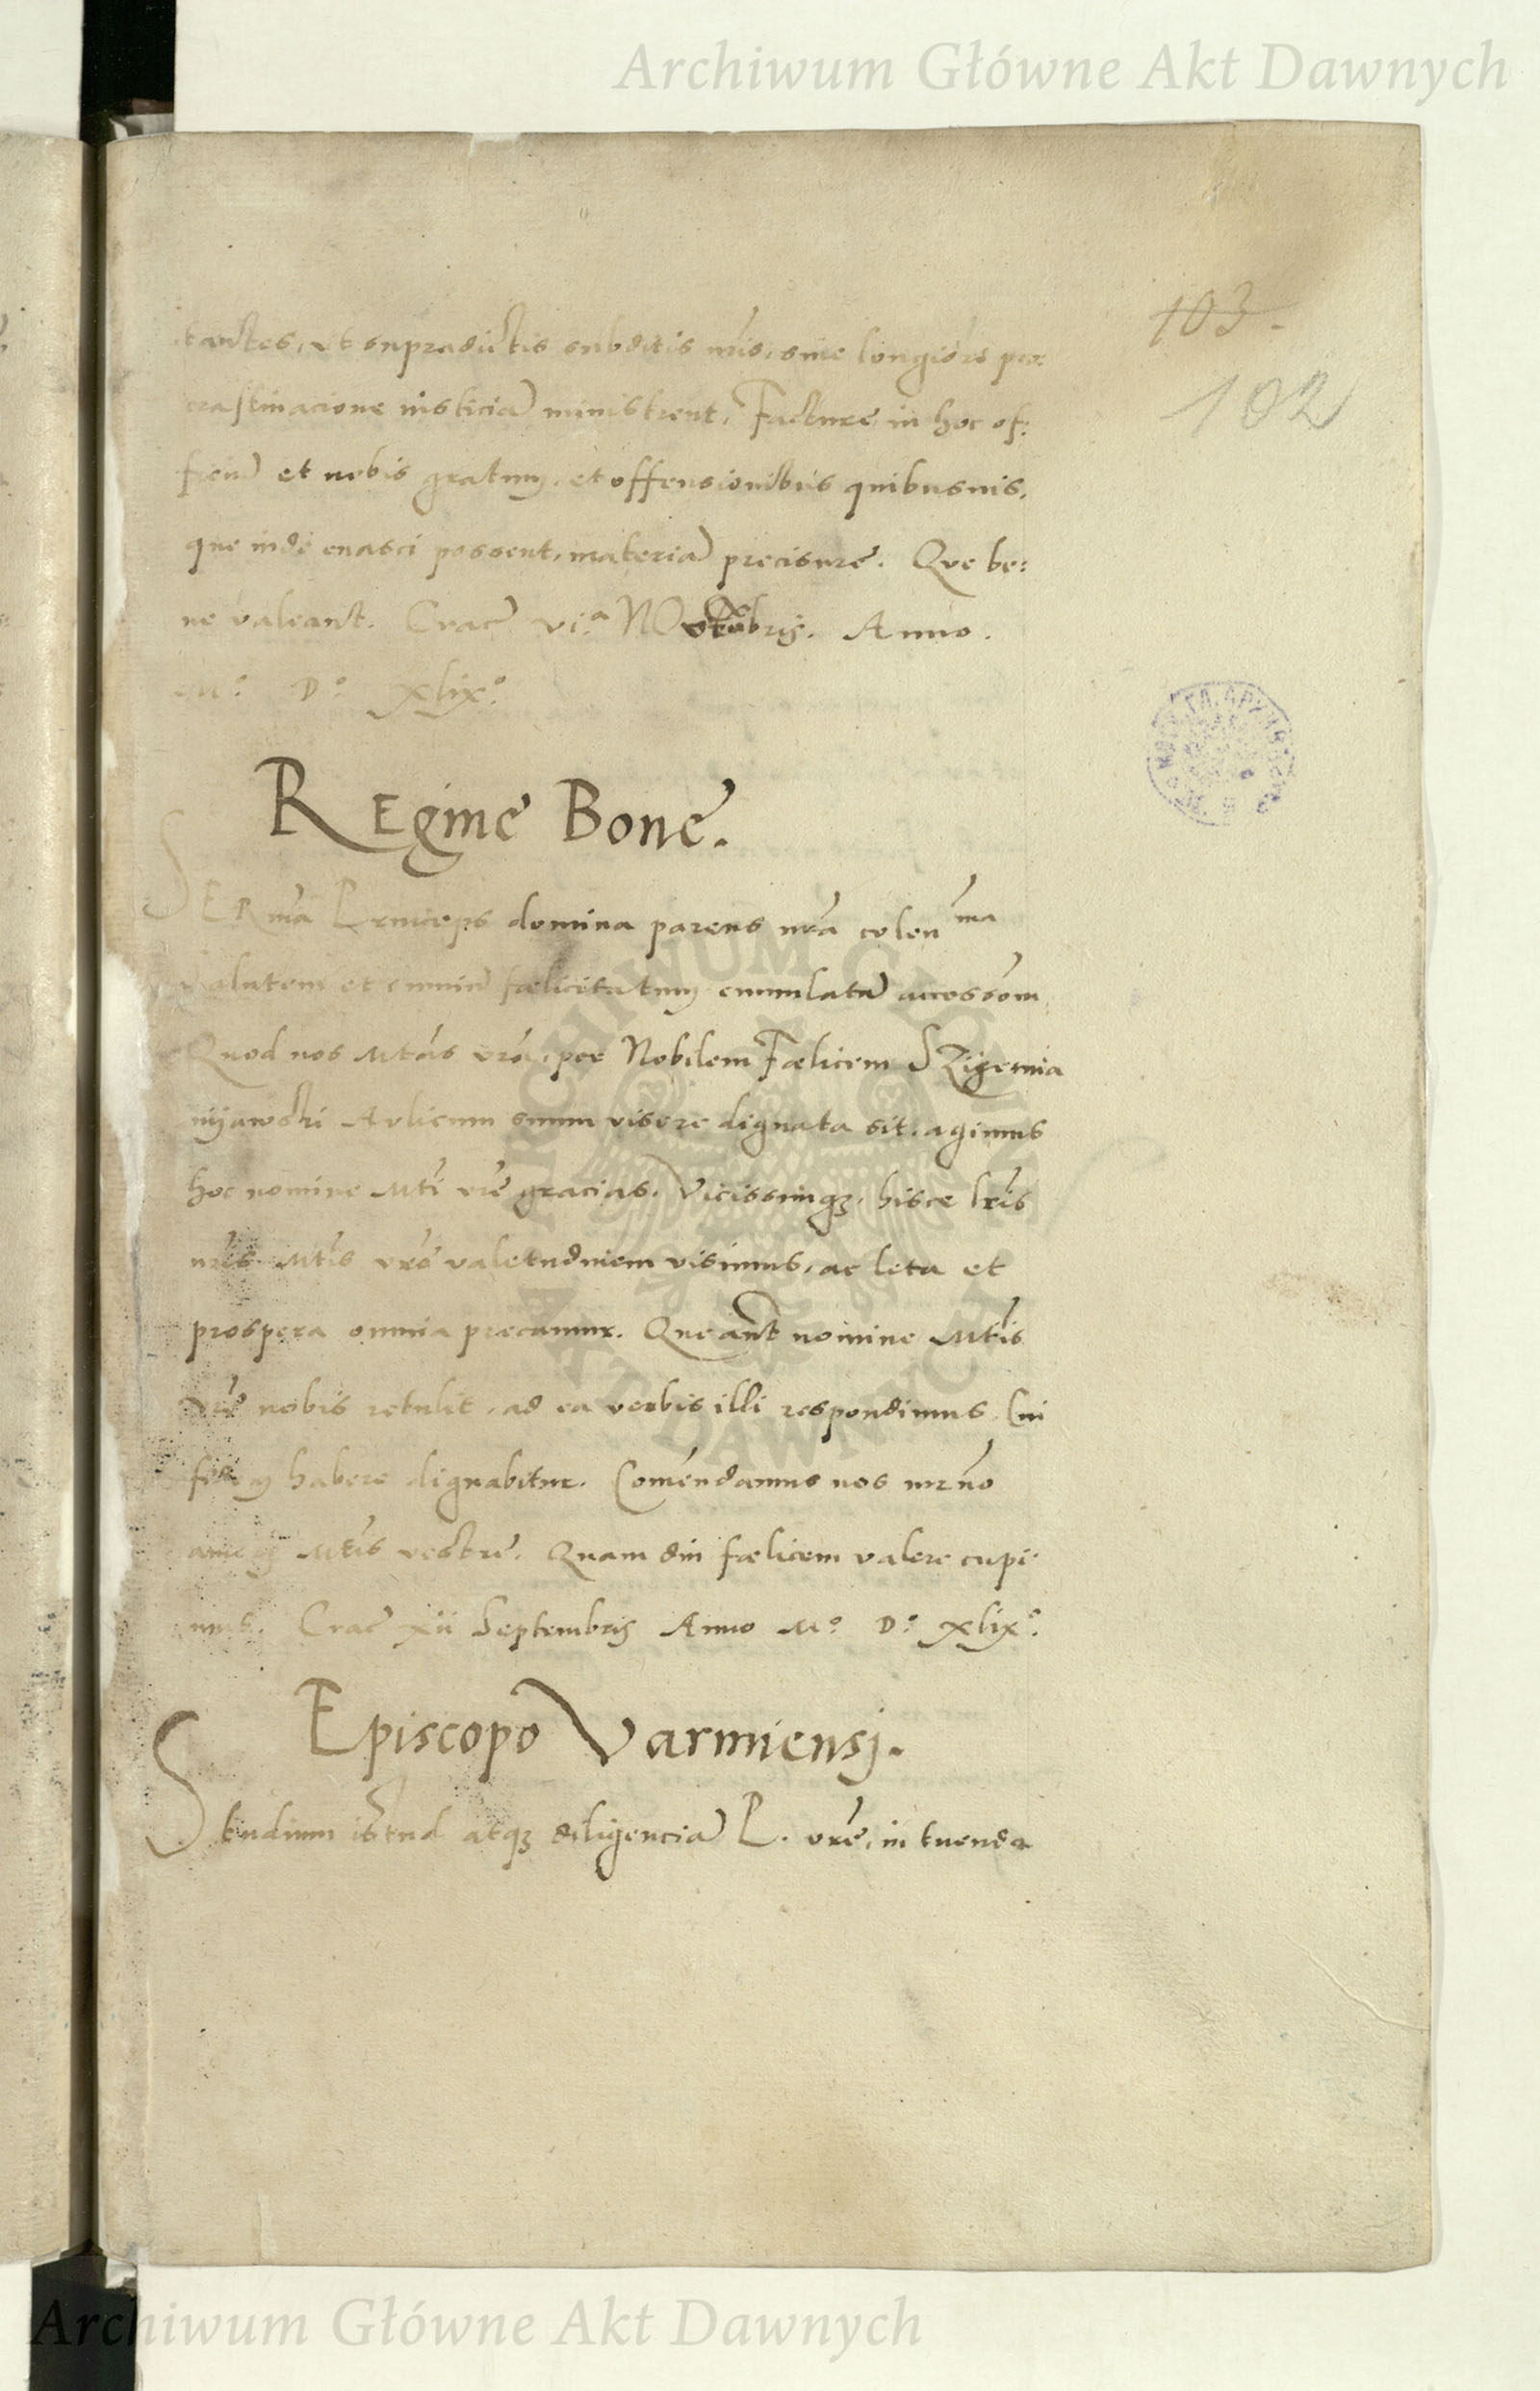 Archiwum Główne Akt Dawnych
103.
102
tantes, ut supradictis subditis nris, sine longiore pro:
crastinacione iusticia ministrent, Facture in hoc of:
ficiu et nobis gratum, et offensionibus quibusuis,
que inde enasci possent, materia precisure. Que be:
ne valeant. Crac vi.a Novembris. Anno.
M.o D.o xlix.o
REgine Bone.
SERma Princeps domina parens nra colen ma
salutem et omniu fœlicitatum cumulata accessom.
Quod nos Mtas vra, per Nobilem Fœlicem SZigemia
nyawski Aulicum suum visere dignata sit, agimus
hoc nomine Mti vre gracias. Vicissimqz, hisce lris
nris Mtis vre valetudinem visimus, ac leta et
prospera omnia precamur. Que aut nomine Mtis
vre nobis retulit, ad ea verbis illi respondimus. Cui
fidem habere dignabitur. Comendamus nos
Mtis vestre. Quam diu fœlicem valere cupi
mus. Crac xii Septembris Anno M.o D.o xlix.o
Episcopo Varmiensj.
Studium istud atqz diligencia P. vre, in tuenda
ARCHIWUM GŁÓWNE AKT DAWNYCH
Archiwum Główne Akt Dawnych